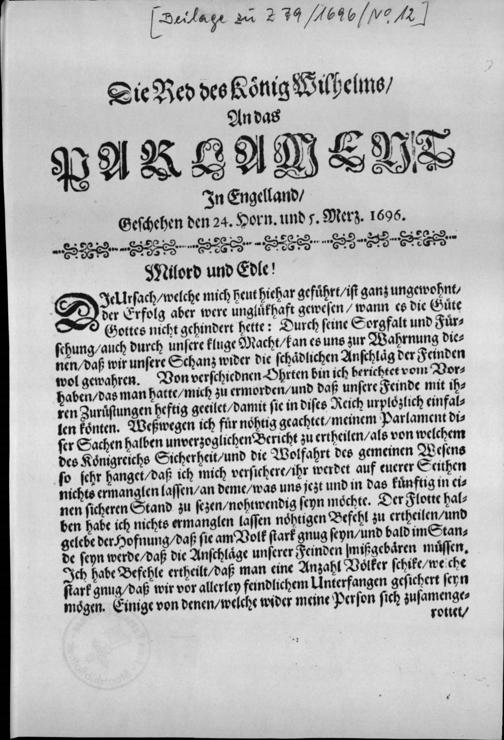 [Beilage zu Z 79/1696/No. 12]
Die Red des König Wilhelms/
An das
PARLAMENT
In Engelland/
Geschehen den 24. Horn. und 5. Merz. 1696.
Milord und Edle!
DIe Ursach/welche mich heut hiehar geführt/ist ganz ungewohnt/
der Erfolg aber were unglükhaft gewesen/ wann es die Güte
Gottes nicht gehindert hette: Durch seine Sorgfalt und Für-
sehung/auch durch unsere kluge Macht/kan es uns zur Wahrnung die-
nen/daß wir unsere Schanz wider die schädlichen Anschläg der Feinden
wol gewahren. Von verschiednen Ohrten bin ich berichtet vom Vor-
haben/das man hatte/mich zu ermorden/und daß unsere Feinde mit ih-
ren Zurüstungen heftig geeilet/damit sie in dises Reich urplözlich einfal-
len könten. Weßwegen ich für nöhtig geachtet/meinem Parlament di-
ser Sachen halben unverzoglichen Bericht zu ertheilen/als von welchem
des Königreichs Sicherheit/und die Wolfahrt des gemeinen Wesens
so sehr hanget/daß ich mich versichere/ihr werdet auf euerer Seithen
nichts ermanglen lassen/an deme/was uns jezt und in das künftig in ei-
nen sicheren Stand zu sezen/nohtwendig seyn möchte. Der Flotte hal-
ben habe ich nichts ermanglen lassen nöhtigen Befehl zu ertheilen/und
gelebe der Hofnung/daß sie am Volk stark gnug seyn/und bald im Stan-
de seyn werde/daß die Anschläge unserer Feinden mißgebären müssen.
Ich habe Befehle ertheilt/daß man eine Anzahl Völker schike/welche
stark gnug/daß wir vor allerley feindlichem Unterfangen gesichert seyn
mögen. Einige von denen/welche wider meine Person sich zusamenge-
rottet/